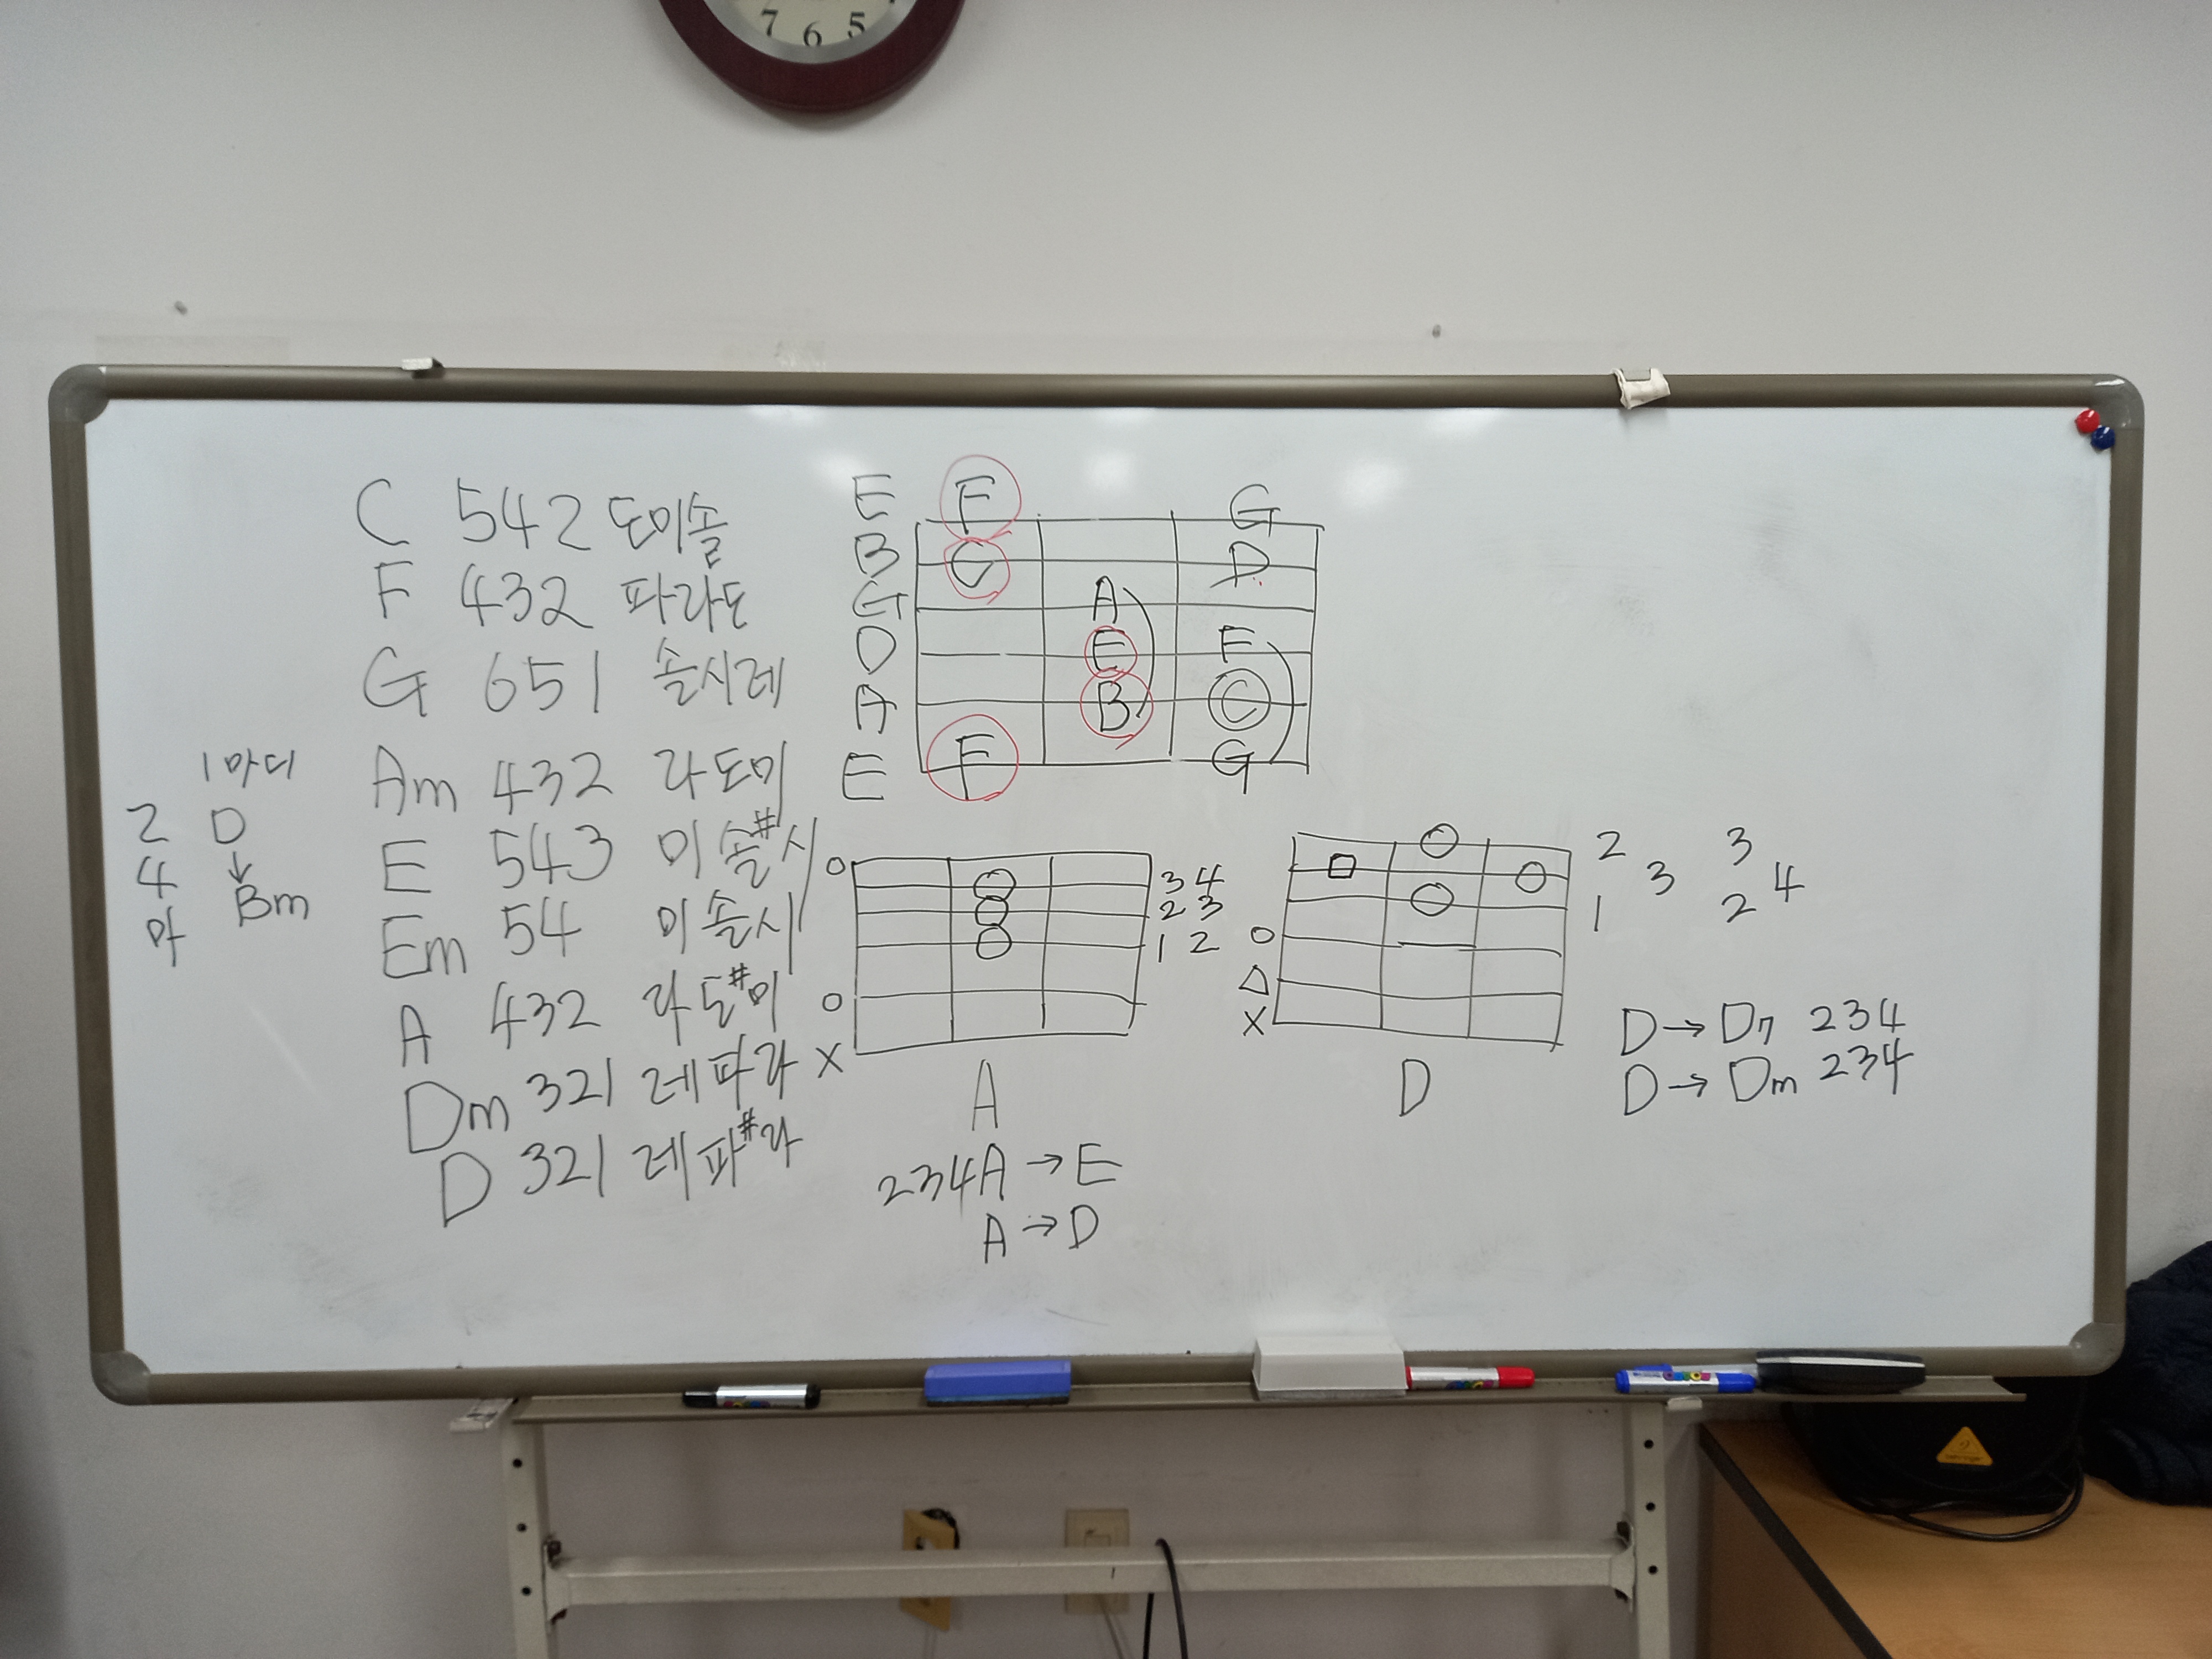 7 6 5
C 542 도미솔
F 432 파라도
G 651 솔시레
Am 432 라도미
E 543 미솔#시
Em 54 미솔시
A 432 라도#미
Dm 321 레파라
D 321 레파#라
1마디
2 D
4 ↓
마 Bm
E F G
B C D
G A
D E F
A B C
E F G
O
3 4
2 3
1 2
O
X
A
234A → E
A → D
2 3
3 4
1 2
O
△
X
D
D → D7 234
D → Dm 234
behringer